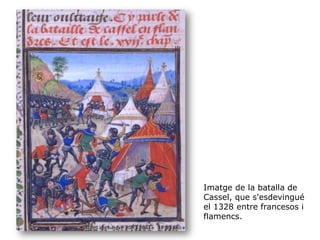 leur oultraige. Et y parle de
la bataille de cassel en flan
dres. Et est le. xviij.e chap.e
Imatge de la batalla de
Cassel, que s'esdevingué
el 1328 entre francesos i
flamencs.